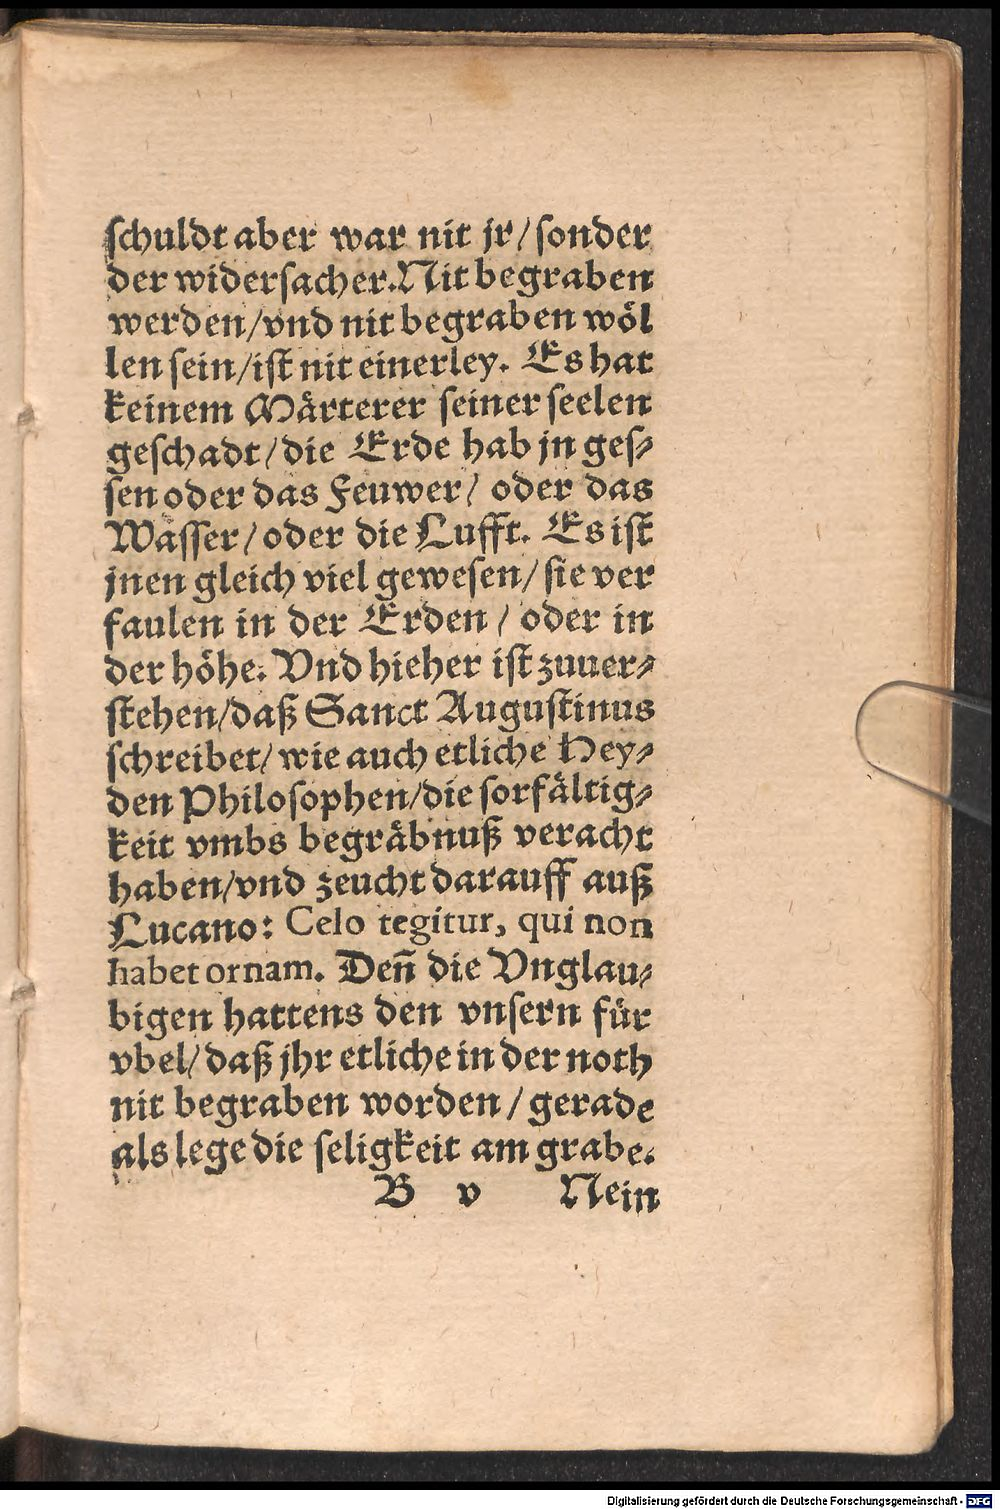 schuldt aber war nit jr/sonder
der widersacher. Nit begraben
werden/vnd nit begraben wöl
len sein/ist nit einerley. Es hat
keinem Märterer seiner seelen
geschadt/die Erde hab jn ges⸗
sen oder das Feuwer/ oder das
Wasser/oder die Lufft. Es ist
jnen gleich viel gewesen/sie ver
faulen in der Erden / oder in
der höhe. Vnd hieher ist zuuer⸗
stehen/daß Sanct Augustinus
schreibet/wie auch etliche Hey⸗
den Philosophen/die sorfältig⸗
keit vmbs begräbnuß veracht
haben/vnd zeucht darauff auß
Lucano: Celo tegitur, qui non
habet ornam. Deñ die Vnglau⸗
bigen hattens den vnsern für
vbel/daß jhr etliche in der noth
nit begraben worden/gerade
als lege die seligkeit am grabe.
B v Nein
Digitalisierung gefördert durch die Deutsche Forschungsgemeinschaft - DFG